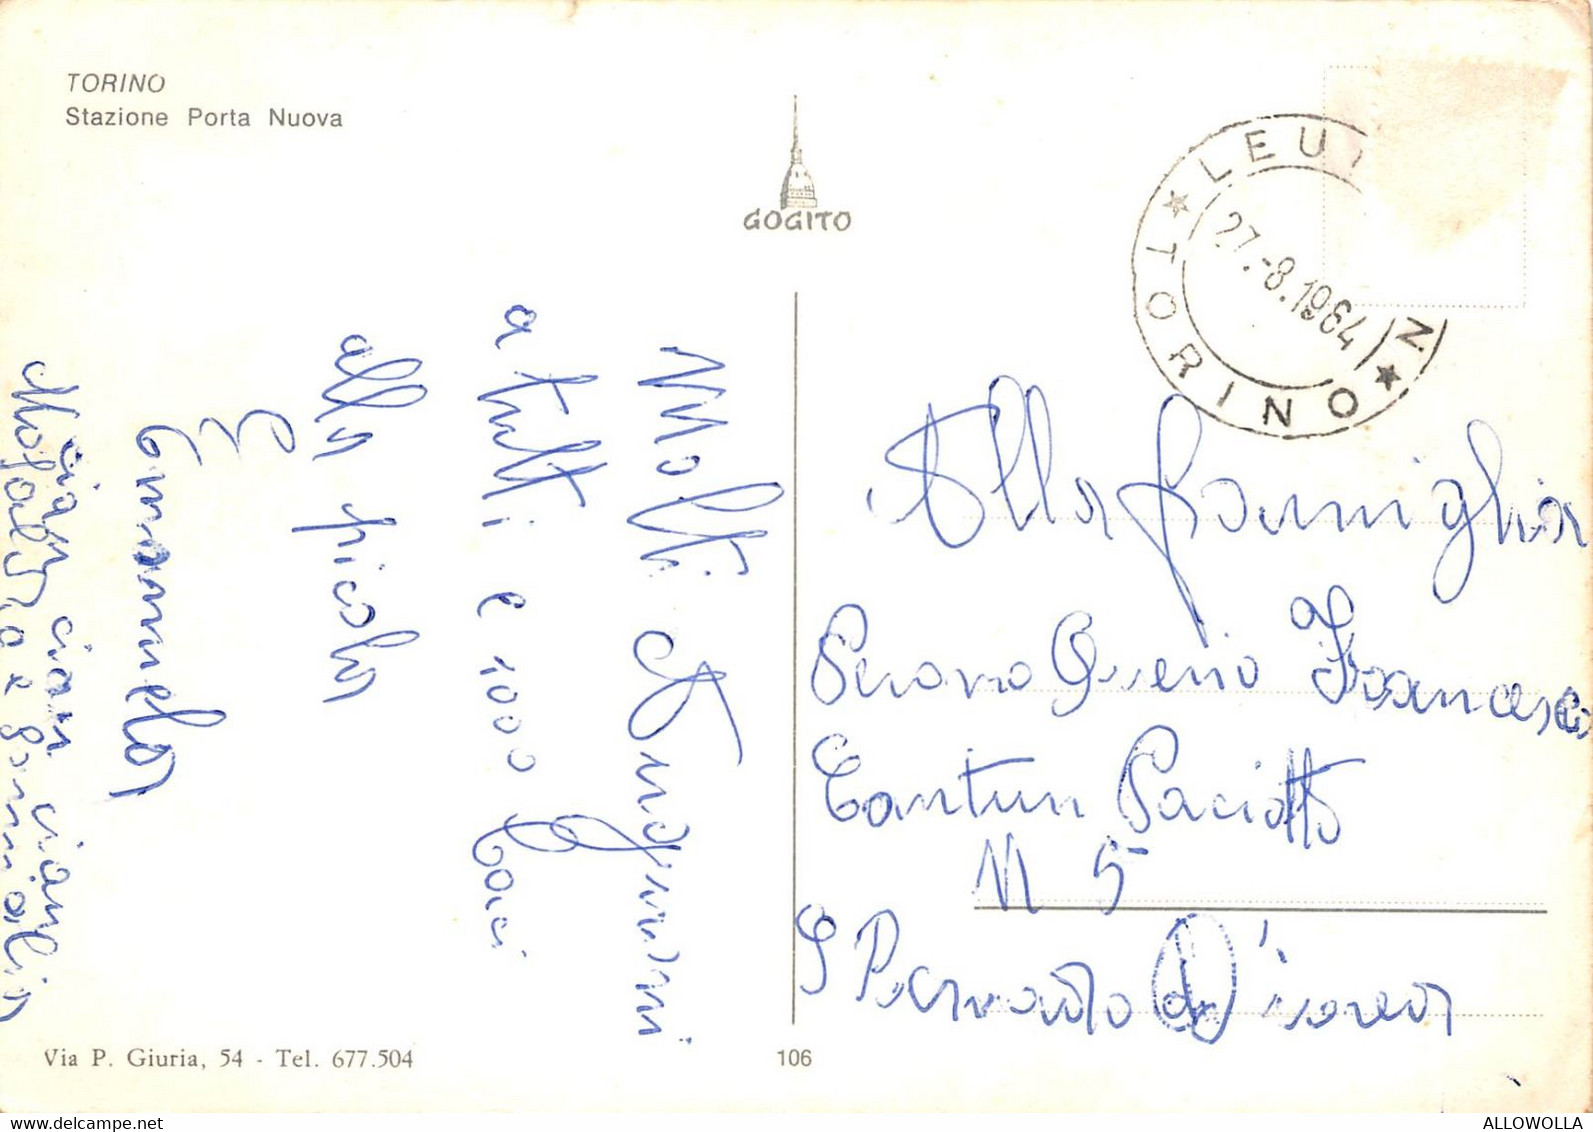 TORINO
Stazione Porta Nuova
GOGITO
LEU N
TORINO
27.-8.1984
Molti Auguroni
a tutti e 1000 baci
alla picola
Emanuela
ciau ciau ciau
e famiglia
Alla famiglia
Francesco
Cantun Paciotto
N 5
S Bernardo D'ivrea
Via P. Giuria, 54 - Tel. 677.504
106
ALLOWOLLA